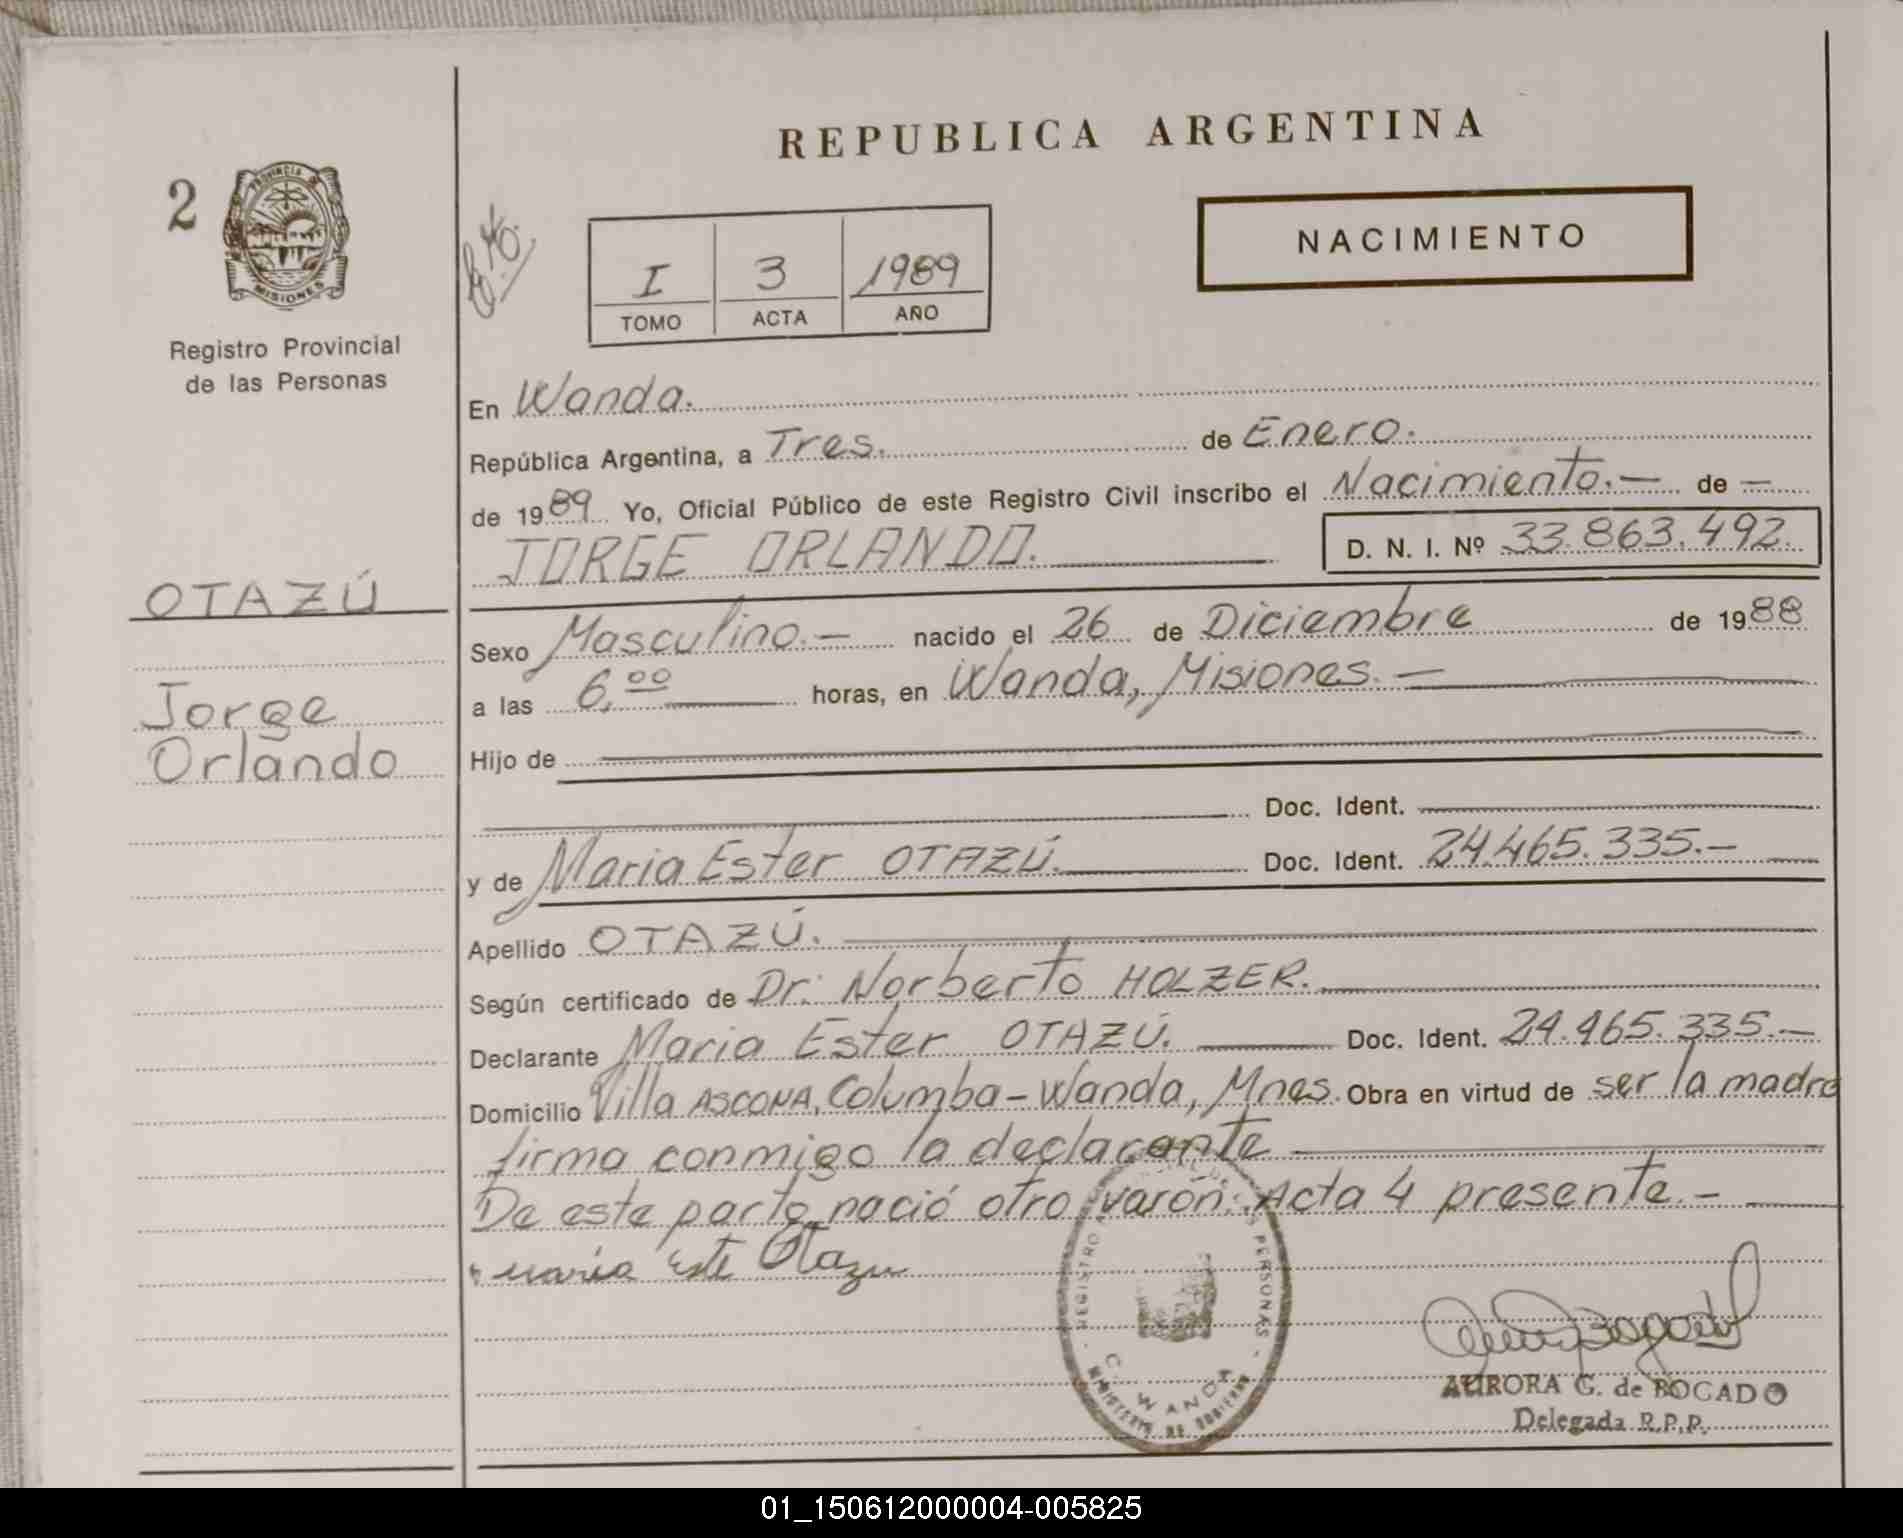 REPUBLICA ARGENTINA
2
PROVINCIA DE
MISIONES
Registro Provincial
de las Personas
I 3 1989
TOMO ACTA AÑO
NACIMIENTO
En Wanda.
República Argentina, a Tres. de Enero.
de 1989 Yo, Oficial Público de este Registro Civil inscribo el Nacimiento.— de —
JORGE ORLANDO. D. N. I. Nº 33.863.492.
OTAZÚ
Jorge
Orlando
Sexo Masculino.— nacido el 26 de Diciembre de 1988
a las 6,00 horas, en Wanda, Misiones.—
Hijo de
Doc. Ident.
y de Maria Ester OTAZÚ. Doc. Ident. 24.465.335.—
Apellido OTAZÚ.
Según certificado de Dr. Norberto HOLZER.
Declarante Maria Ester OTAZÚ. Doc. Ident. 24.465.335.—
Domicilio Villa ASCONA, Columba - Wanda, Mnes. Obra en virtud de ser la madre
firma conmigo la declarante
De este parto nació otro varón. Acta 4 presente.—
Maria Este Otazu
REGISTRO DE LAS PERSONAS
WANDA
MINISTERIO DE GOBIERNO
AURORA G. de BOGADO
Delegada R.P.P.
01_150612000004-005825